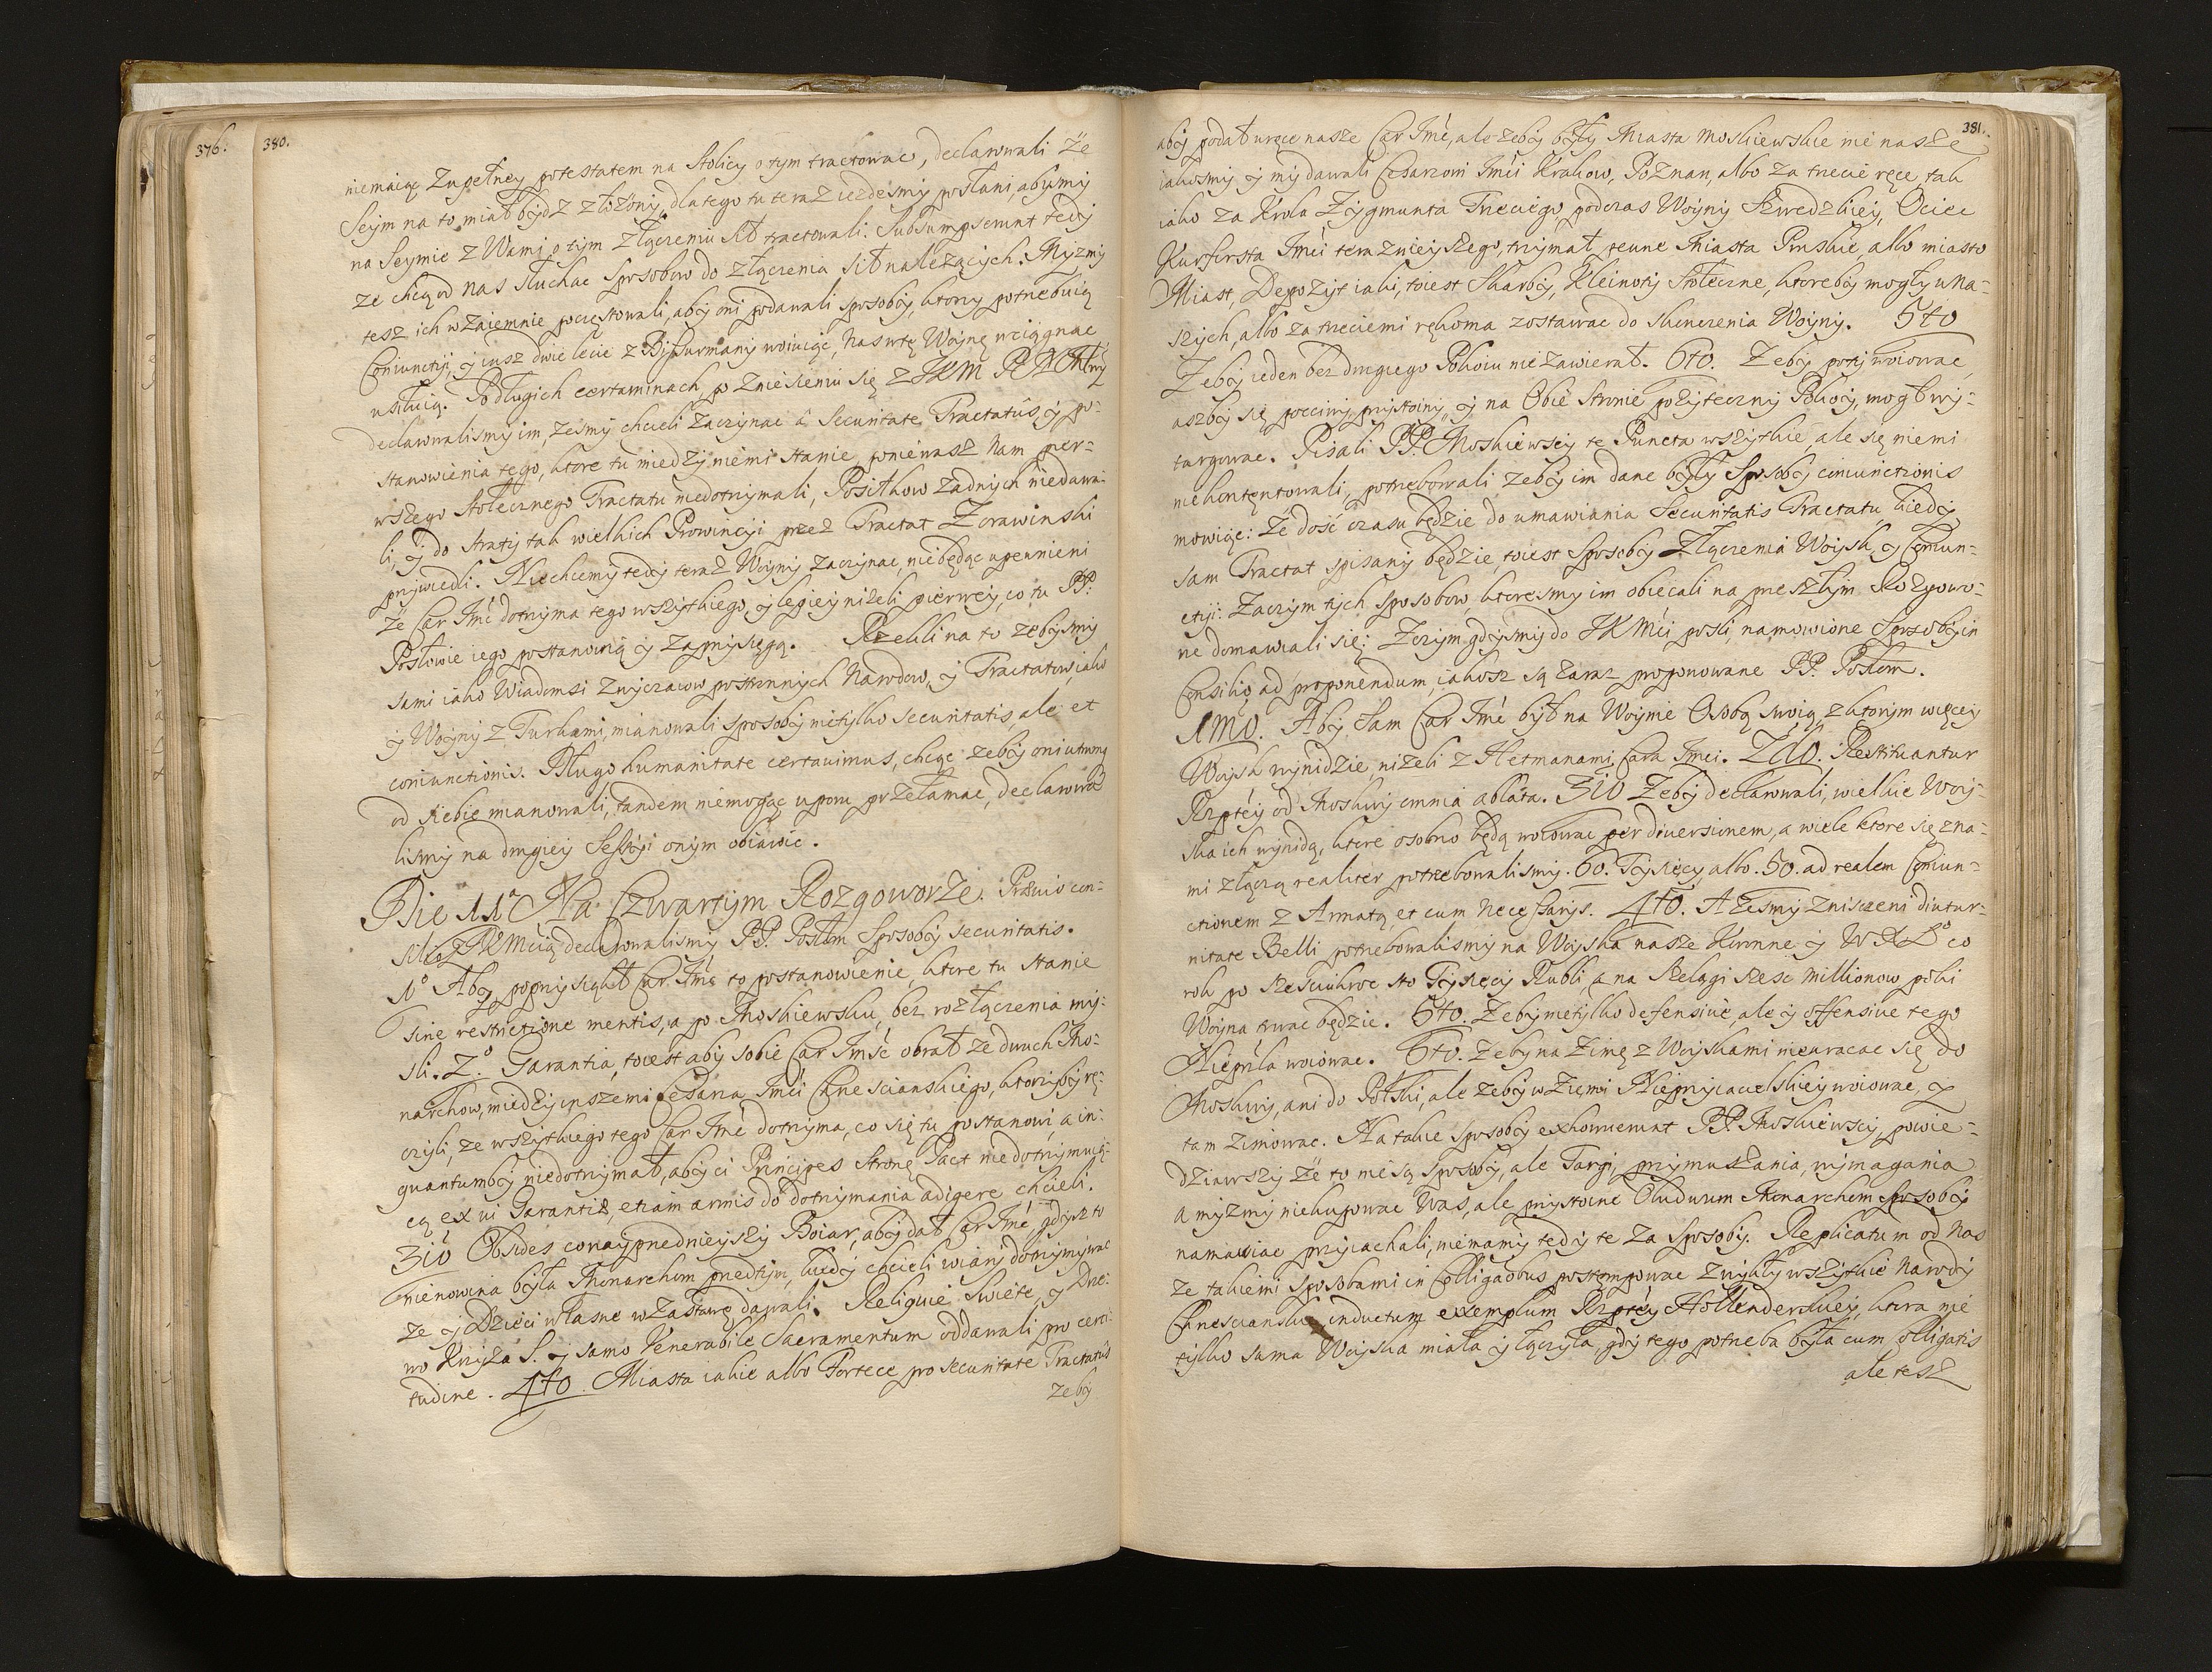 376.
380.
niemaiąc Zupełney potestatem na Stolicy o tym tractowac, declarowali że
Seym na to miał bydz złożony, dla tego tu teraz iezdesmy posłani, abysmy
na Seymie z Wami o tym złączeniu sił tractowali. Subsumpserunt tedy
ze chcą od nas słuchac sposobow do złączenia sił nalezących: Myzmy
tesz ich wzaiemnie poczęstowali, aby oni podawali sposoby, ktorzy potrzebuią
Coniunctij, y iusz dwie lecie z Bissurmany woiuiąc, nas w tę Woynę wciągnac
usiłuią. Po długich certaminach, po zniesieniu się z JKM PNMłwy
declarowalismy im, zesmy chcieli zaczynac à Securitate Tractatûs, y po-
stanowienia tego, ktore tu miedzy niemi stanie, poniewasz nam per-
wszego stołecznego Tractatu niedotrzymali, Posiłkow zadnych niedawa-
li, y do straty tak wielkich Prowincyi przez Tractat Zorawinski
przywiedli. Niechcemy tedy teraz Woyny zaczynac, niebędąc upewnieni
że Car Jmć dotrzyma tego wszytkiego, y lepiey nizeli pierwey, co tu PP.
Posłowie iego postanowią y zaprzysięgą. Rzekli na to zebysmy
sami iako Wiadomsi zwyczaiow postronnych Narodow, y Tractatow, iako
y Woyny z Turkami, mianowali sposoby nietylko securitatis, ale et
coniunctionis. Długo humanitate certavimus, chcąc zeby oni utrumq
od siebie mianowali, tandem niemogąc uporu przełamac, declarowa-
lismy na drugiey Sessyi onym obiawic.
Die 11ª Na Czwartym Rozgoworze. Prævio con-
silio z JKMcią declarowalismy PP. Posłom Sposoby securitatis.
1º Aby poprzysiągł Car Jmć to postanowienie, ktore tu stanie
sine restrictione mentis, a po Moskiewsku, bez rozłączenia my-
sli. 2º. Garantia, toiest aby sobie Car Jmść obrał ze dwuch Mo-
narchow, miedzy inszemi Cesarza Jmći Chrescianskiego, ktorzyby rę-
czyli, ze wszytkiego tego Car Jmć dotrzyma, co się tu postanowi, a in-
quantumby niedotrzymał, aby ci Principes Stronę Pact niedotrzymuią-
cą ex vi Garantiæ, etiam armis do dotrzymania adigere chcieli.
3io Obsides co nayprzednieyszy Boiar, aby dał Car Jmć, gdysz to
nienowina była Monarchom przedtym, kiedy chcieli wiary dotrzymywac
ze y Dzieci własne w zastawę dawali. Religuie Swięte, y Drze-
wo Krzyża S. y samo Venerabile Sacramentum oddawali pro certi-
tudine. 4to. Miasta iakie albo Fortece pro securitate Tractatûs
zeby
381.
aby podał w ręce nasze Car Jmć, ale zeby były Miasta Moskiewskie nie nasze
iakosmy y my dawali Cesarzowi Jmći Krakow, Poznan, albo za trzecie ręce, tak
iako za Krola Zygmunta Trzeciego, podczas Woyny Szwedzkiey, Ociec
Kurfirsta Jmći teraznieyszego, trzymał, pewne Miasta Pruskie, albo miasto
Miast, Depozyt iaki, toiest Skarby, Kleinoty Stołeczne, ktoreby mogły u Na-
szych, albo za trzeciemi rękoma zostawac do skonczenia Woyny. 5to
Zeby ieden bez drugiego Pokoiu nie zawierał. 6to. Zeby poty woiowac
aszby się poczciwy, przystoiny, y na Obie Stronie pożyteczny Pokoy, mogł wy-
targowac. Pisali PP. Moskiewscy te Puncta wszytkie, ale się niemi
niekontentowali, potrzebowali zeby im dane były Sposoby coniunctionis
mowiąc: że dość czasu będzie do umawiania Securitatis Tractatu kiedy
sam Tractat spisany będzie, toiest Sposoby złączenia Woysk, y Coniun-
ctij: Zaczym tych sposobow, ktoresmy im obiecali na przeszłym Rozgowo-
rze domawiali się: Zczym gdysmy do JKMci poszli, namowione Sposoby in
Consilio, ad proponendum, iakosz są zaraz proponowane PP. Posłom.
1mo. Aby Sam Car Jmć był na Woynie Osobą swoią, z ktorym więcey
Woyska wynidzie, nizeli z Hetmanami Cara Jmci. 2do. Restituantur
Rzptey od Moskwy omnia ablata. 3io Zeby declarowali, wielkie Woy-
ska ich wynidą, ktore osobno będą woiowac per diversionem, a wiele ktore się z na-
mi złączą realiter potrzebowalismy. 60. Tysięcy albo. 50. ad realem Coniun-
ctionem z Armatą, et cum necessarijs. 4to. A żesmy zniszczeni diutur-
nitate Belli potrzebowalismy na Woyska nasze Koronne y W X Lº co
rok po szesciukroc sto Tysięcy Rubli, a na Szelągi szesc millionow poki
Woyna trwac będzie. 5to. Zeby nietylko defensive, ale y offensive tego
Nieprzla woiowac. 6to. Zeby na Zimę z Woyskami niewracac się do
Moskwy, ani do Polski, ale zeby w Ziemi Nieprzyiacielskiey woiowac, y
tam zimowac. Na takie sposoby exhorruerunt PP. Moskiewscy, powie-
dziawszy że to nie są sposoby, ale Targi, przymuszania, wymagania
a myzmy niekupowac Was, ale przystoine Obudwum Monarchom sposoby
namawiac przyiachali, niemamy tedy te za sposoby. Replicatum od Nas
ze takiemi sposobami in Colligaobus postempowac zwykły wszytkie Narody
Chrescianskie inductum exemplum Rzptey Hollenderskiey, ktora nie
tylko sama Woyska miała y łączyła, gdy tego potrzeba była cum Colligatis
ale tesz